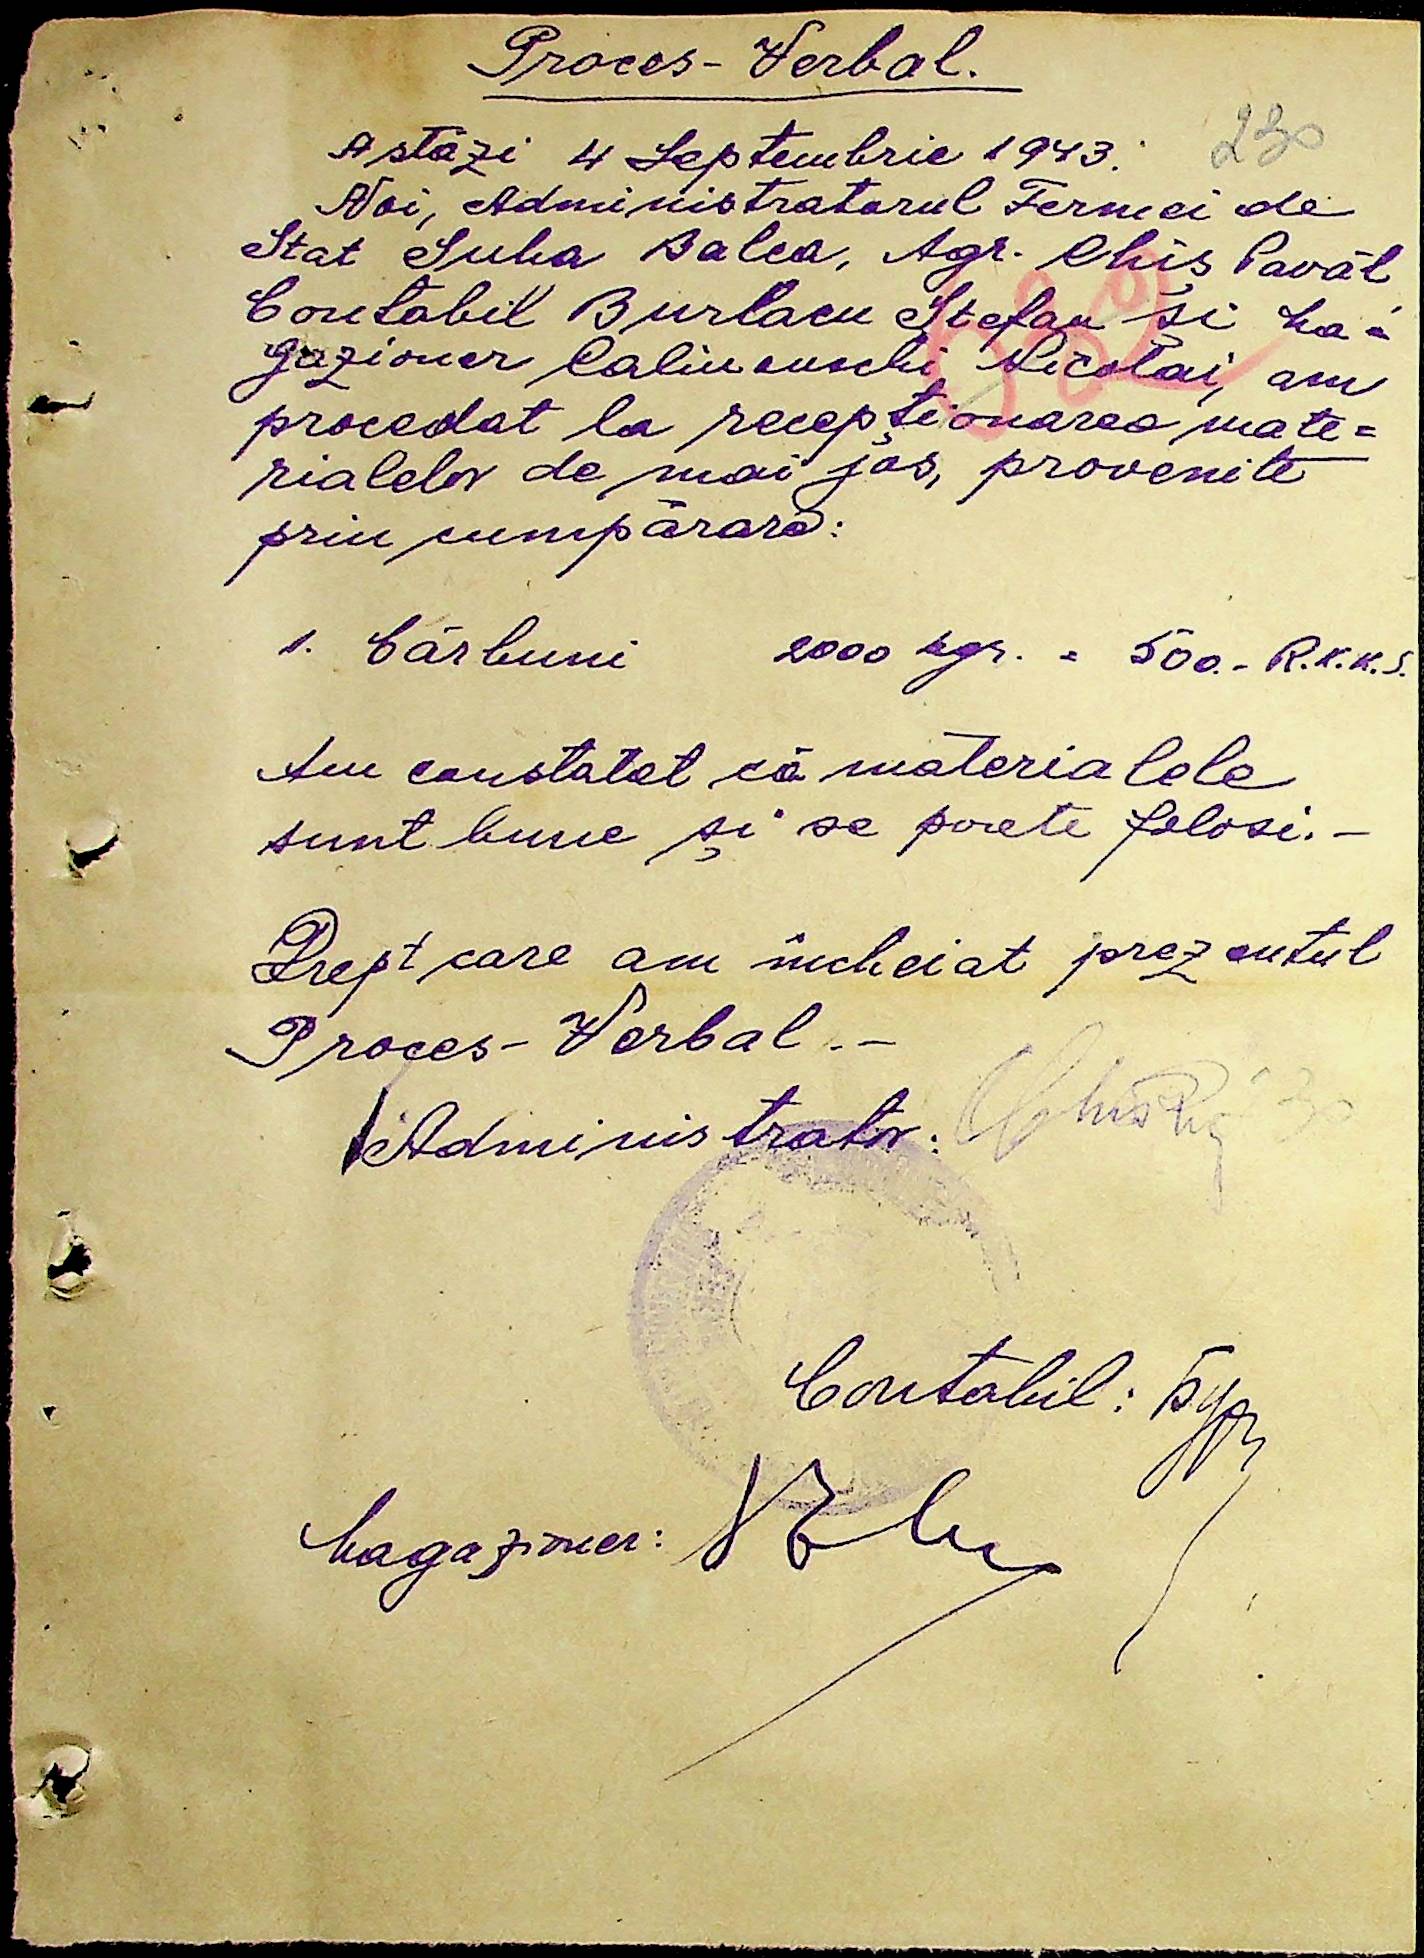 Proces-Verbal.
230
Astăzi 4 Septembrie 1943.
Noi, Administratorul Fermei de
Stat Suha Balca, Agr. Chiș Pavăl
Contabil Burlacu Stefan si Ma=
gazioner Calinovschi Nicolai, am
procedat la recepționarea mate=
rialelor de mai jos, provenite
prin cumpărare:
1. Cărbuni 2000 kgr. = 500.- R.K.K.S.
Am constatat că materialele
sunt bune și se poate folosi.-
Drept care am încheiat prezentul
Proces-Verbal.-
Administrator:
Contabil:
Magazioner: